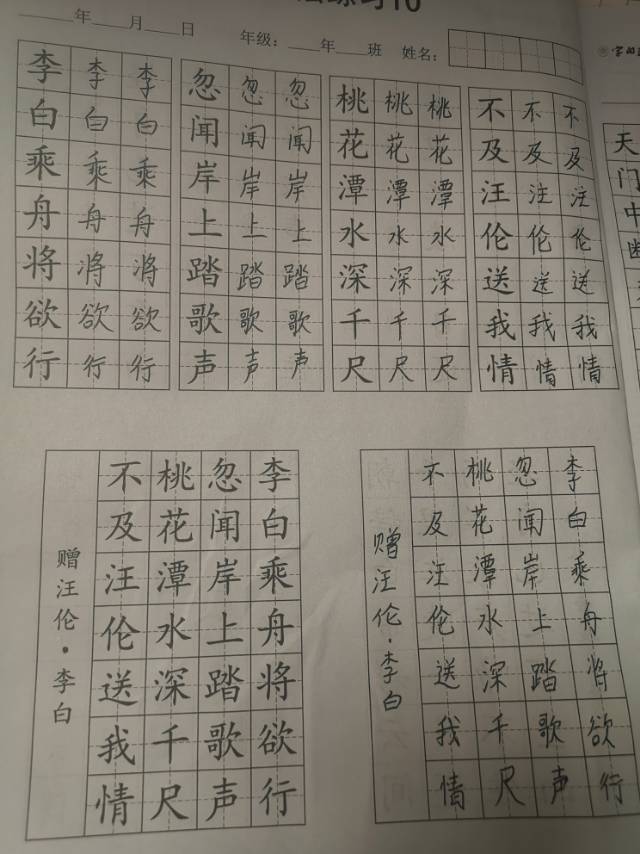 练习10
年 月 日 年级: 年 班 姓名:
李白乘舟将欲行
李白乘舟将欲行
李白乘舟将欲行
忽闻岸上踏歌声
忽闻岸上踏歌声
忽闻岸上踏歌声
桃花潭水深千尺
桃花潭水深千尺
桃花潭水深千尺
不及汪伦送我情
不及注伦送我情
不及注伦送我情
李白乘舟将欲行
忽闻岸上踏歌声
桃花潭水深千尺
不及汪伦送我情
赠汪伦·李白
李白乘舟将欲行
忽闻岸上踏歌声
桃花潭水深千尺
不及注伦送我情
赠汪伦·李白
天门中断